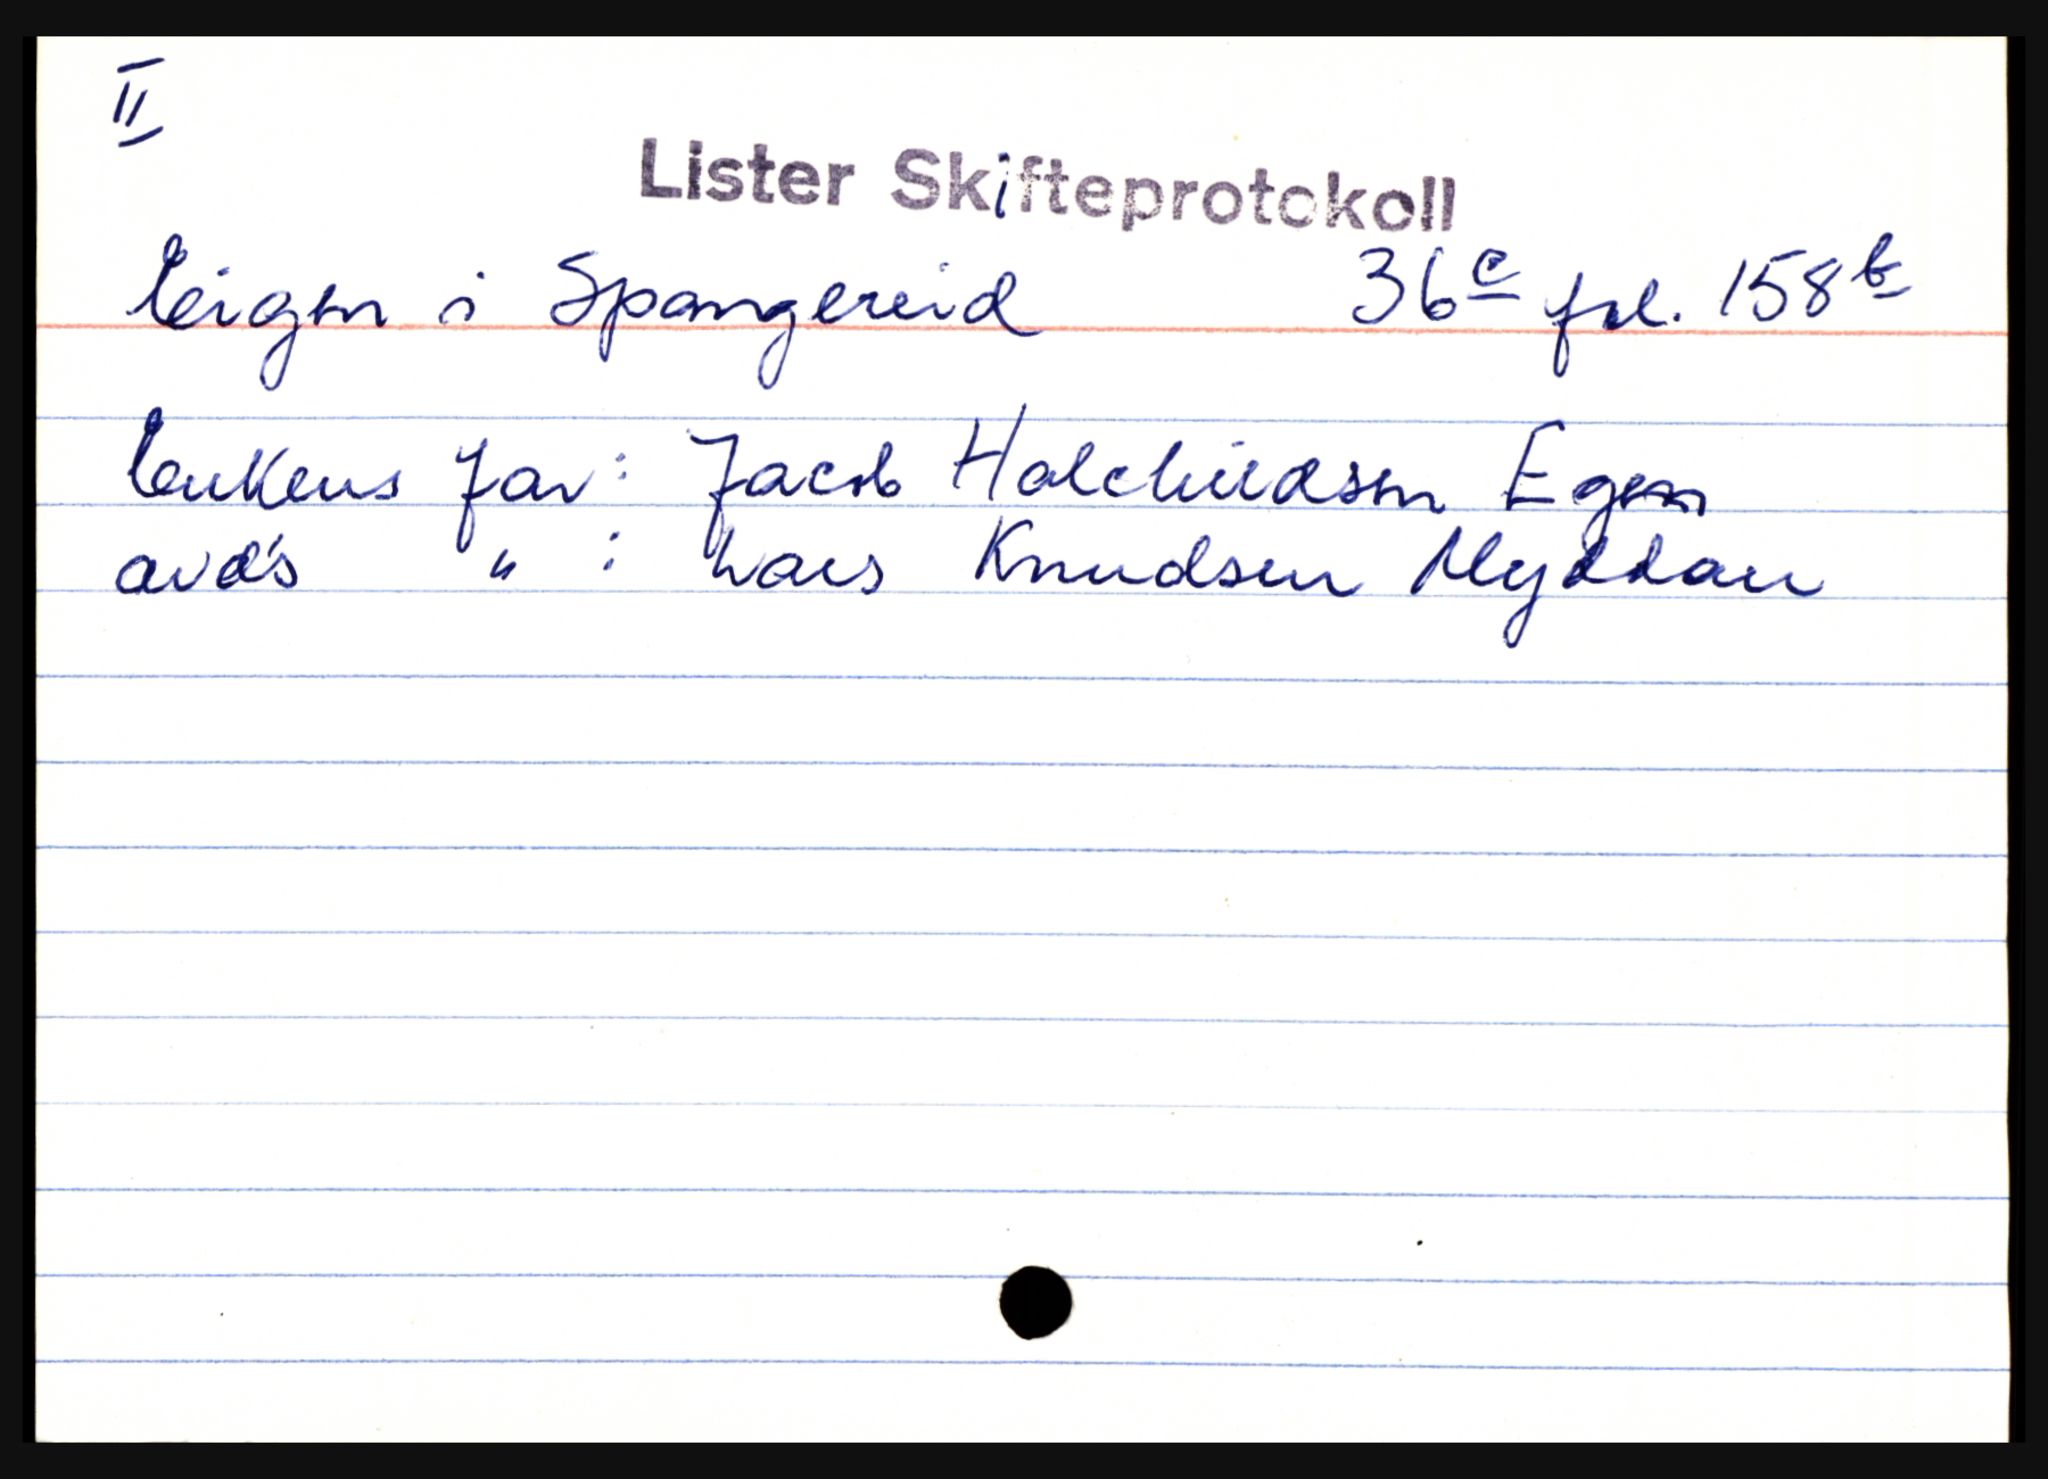 II
Lister Skifteprotokoll
Eigen i Spangereid 36c fol. 158b
Enkens far: Jacob Halchildsen Egen
avd's " : Lars Knudsen Myddan